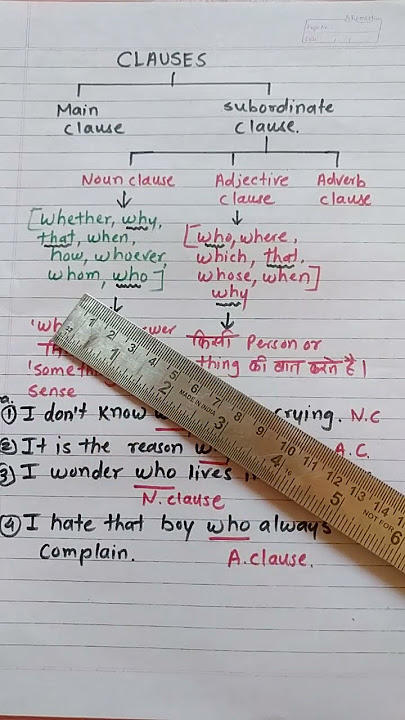 CLAUSES
Main clause
subordinate clause.
Noun clause
Adjective clause
Adverb clause
[whether, why,
that, when,
how, whoever,
whom, who]
[who, where,
which, that,
whose, when]
why
किसी Person or
thing की बात करते है।
Sense
① I don't know crying. N.C
② It is the reason A.C.
③ I wonder who lives
N. clause
④ I hate that boy who always
Complain. A. clause.
MADE IN INDIA
1 2 3 4 5 6 7 8 9 10 11 12 13 14
1 2 3 4 5 6
NOT FOR